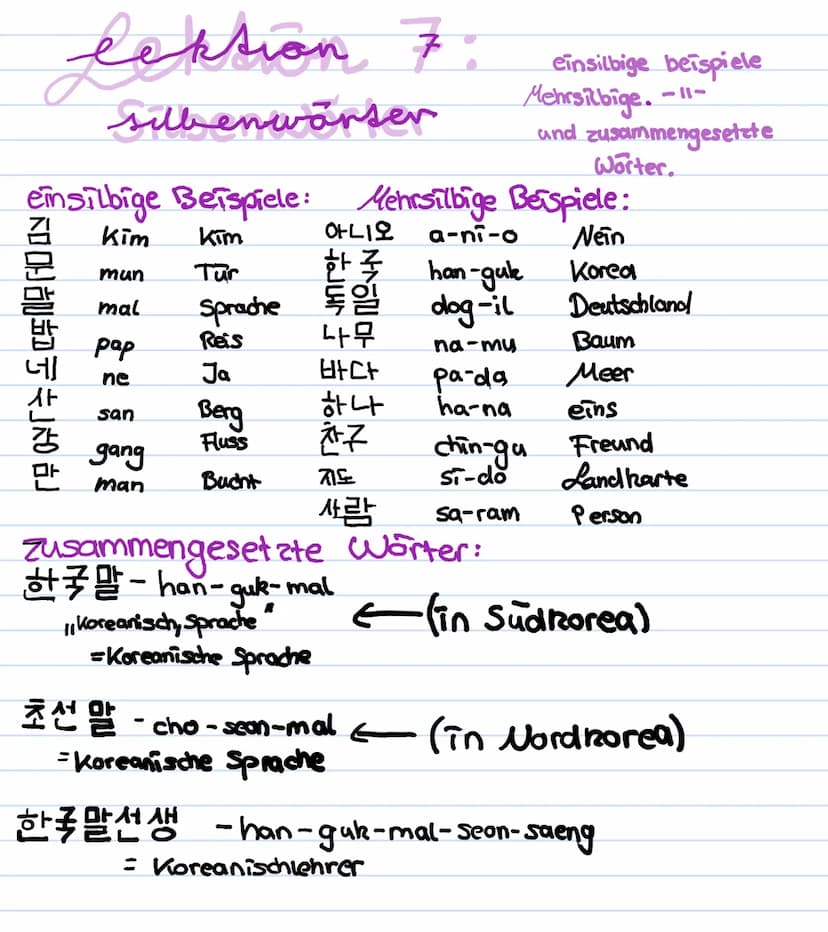 Lektion 7:
Silbenwörter
einsilbige beispiele
Mehrsilbige. -"-
und zusammengesetzte
Wörter.
einsilbige Beispiele: Mehrsilbige Beispiele:
김 Kim Kim 아니오 a-ni-o Nein
문 mun Tür 한국 han-guk Korea
말 mal Sprache 독일 dog-il Deutschland
밥 pap Reis 나무 na-mu Baum
네 ne Ja 바다 pa-da Meer
산 san Berg 하나 ha-na eins
강 gang Fluss 친구 chin-gu Freund
만 man Bucht 지도 si-do Landkarte
사람 sa-ram Person
Zusammengesetzte Wörter:
한국말 - han-guk-mal
„Koreanisch, Sprache" ← (in Südkorea)
= Koreanische Sprache
조선말 - cho-seon-mal ← (in Nordkorea)
= Koreanische Sprache
한국말선생 - han-guk-mal-seon-saeng
= Koreanischlehrer